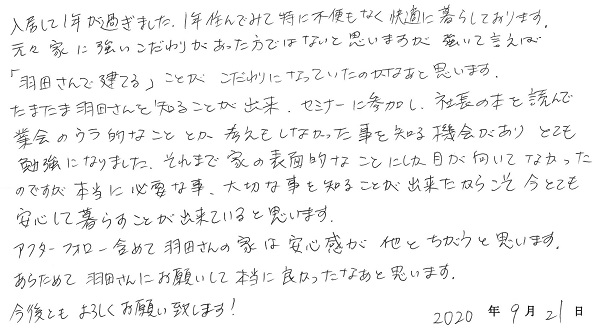 入居して1年が過ぎました。1年住んでみて特に不便もなく快適に暮らしております。
元々家に強いこだわりがあった方ではないと思いますが強いて言えば
「羽田さんで建てる」ことがこだわりになっていたのかなあと思います。
たまたま羽田さんを知ることが出来、セミナーに参加し、社長の本を読んで
業会のウラ的なこととか考えもしなかった事を知る機会がありとても
勉強になりました。それまで家の表面的なことにしか目が向いてなかった
のですが本当に必要な事、大切な事を知ることが出来たからこそ今とても
安心して暮らすことが出来ていると思います。
アフターフォロー含めて羽田さんの家は安心感が他とちがうと思います。
あらためて羽田さんにお願いして本当に良かったなあと思います。
今後ともよろしくお願い致します!
2020年9月21日